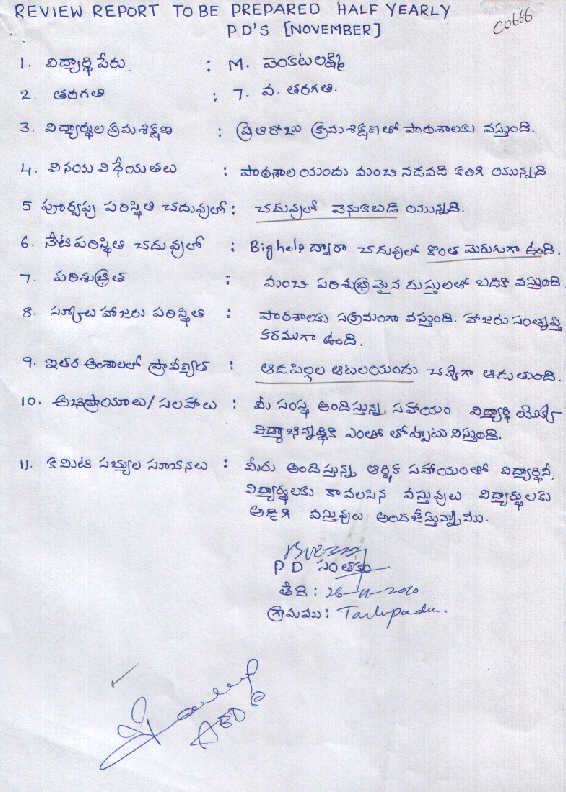 REVIEW REPORT TO BE PREPARED HALF YEARLY
PD'S [NOVEMBER]
1. విద్యార్థి పేరు : M. వెంకటలక్ష్మి
2. తరగతి : 7. వ. తరగతి.
3. విద్యార్థుల క్రమశిక్షణ : ప్రతిరోజు క్రమశిక్షణతో పాఠశాలకు వస్తుంది.
4. వినయ విధేయతలు : పాఠశాల యందు మంచి నడవడి కలిగి యున్నది
5 పూర్వపు పరిస్థితి చదువులో : చదువులో వెనుకబడి యున్నది.
6. నేటి పరిస్థితి చదువులో : Big help ద్వారా చదువులో కొంత మెరుగుగా ఉంది.
7. పరిశుభ్రత : మంచి పరిశుభ్రమైన దుస్తులలో బడికి వస్తుంది.
8. స్కూలు హాజరు పరిస్థితి : పాఠశాలకు సక్రమంగా వస్తుంది. హాజరు సంతృప్తి
కరముగా ఉంది.
9. ఇతర అంశాలలో ప్రావీణ్యత : ఆడపిల్లల ఆటలయందు చక్కగా ఆడుతుంది.
10. అభిప్రాయాలు/సలహాలు : మీ సంస్థ అందిస్తున్న సహాయం విద్యార్థి యొక్క
విద్యాభివృద్ధికి ఎంతో తోడ్పాటు నిస్తుంది.
11. కమిటి సభ్యుల సూచనలు : మీరు అందిస్తున్న ఆర్థిక సహాయంతో విద్యార్థినీ,
విద్యార్థులకు కావలసిన వస్తువులు విద్యార్థులకు
అడిగి వస్తువులు అందజేస్తున్నాము.
PD సంతకం
తేది : 26-11-2010
గ్రామము : Tarlupadu.